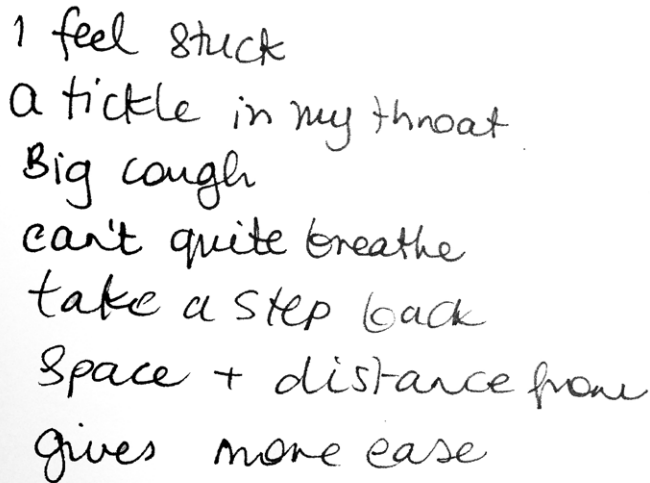 I feel stuck
a tickle in my throat
Big cough
can't quite breathe
take a step back
Space + distance from
gives more ease